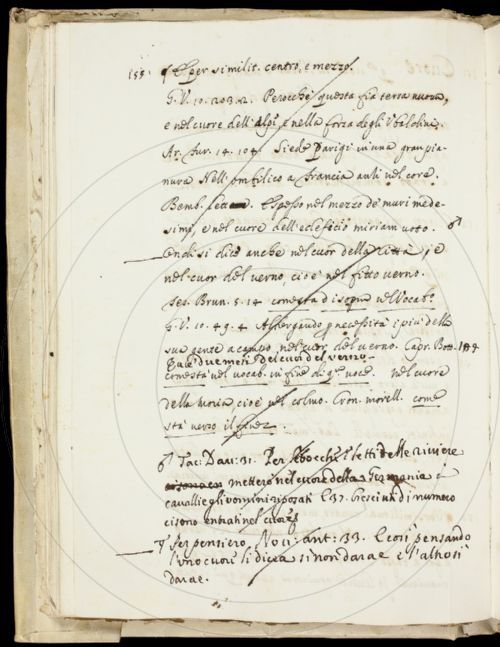 155. ¶ E per similit. centro, e mezzo.
G. V. 10. 203. 2. Perocchè questa fia terra nuova,
e nel cuore dell'Alpi e nella forza degli Vbaldini.
Ar. Fur. 14. 104. Siede Parigi in una gran pia-
nura Nell'ombilico a Francia anzi nel core.
Bemb. E spesso nel mezzo de' muri mede-
simi, e nel cuore dell'edeficio miriam voto.
Ondi si dice anche nel cuor della città, e
nel cuor del verno, cioè nel fitto verno.
Tes. Brun. 5. 14 come sta di sopra nel Vocab.º
G. V. 10. 49. 4 Albergando p necessità i più della
sua gente a campo, nel cuor del verno. Capr. Bott.
due mesi del cuor del verno
come sta nel Vocab. in fine di q.ª voce. nel cuore
della moria, cioè nel colmo. Cron. Morell. come
sta verso il fine.
Tac: Dav: 31. Per bocche e letti delle riviere
mettero nel cuore della Germania
cavalli e gli vomini riposati E 37. cresciuti di numero
ci sono entrati nel cuore
¶ Per pensiero Nov: ant: 33. E così pensando
l'uno cuore li dicea si non darae e l'altro si
darae.